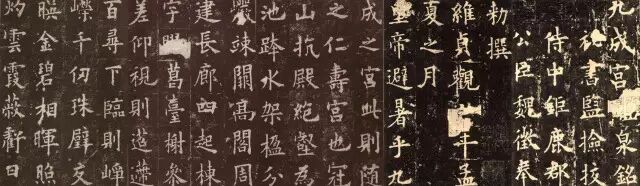 九成宮泉銘
祕書監撿挍
侍中鉅鹿郡
公臣魏徵奉
勑撰
維貞觀年孟
夏之月
皇帝避暑乎九
成之宮此則随
之仁壽宮也冠
山抗殿絶壑為
池跨水架楹分
巖竦闕高閣周
建長廊四起棟
宇膠葛臺榭叅
差仰視則迢遰
百尋下臨則崢
嶸千仞珠璧交
暎金碧相暉照
灼雲霞蔽虧日